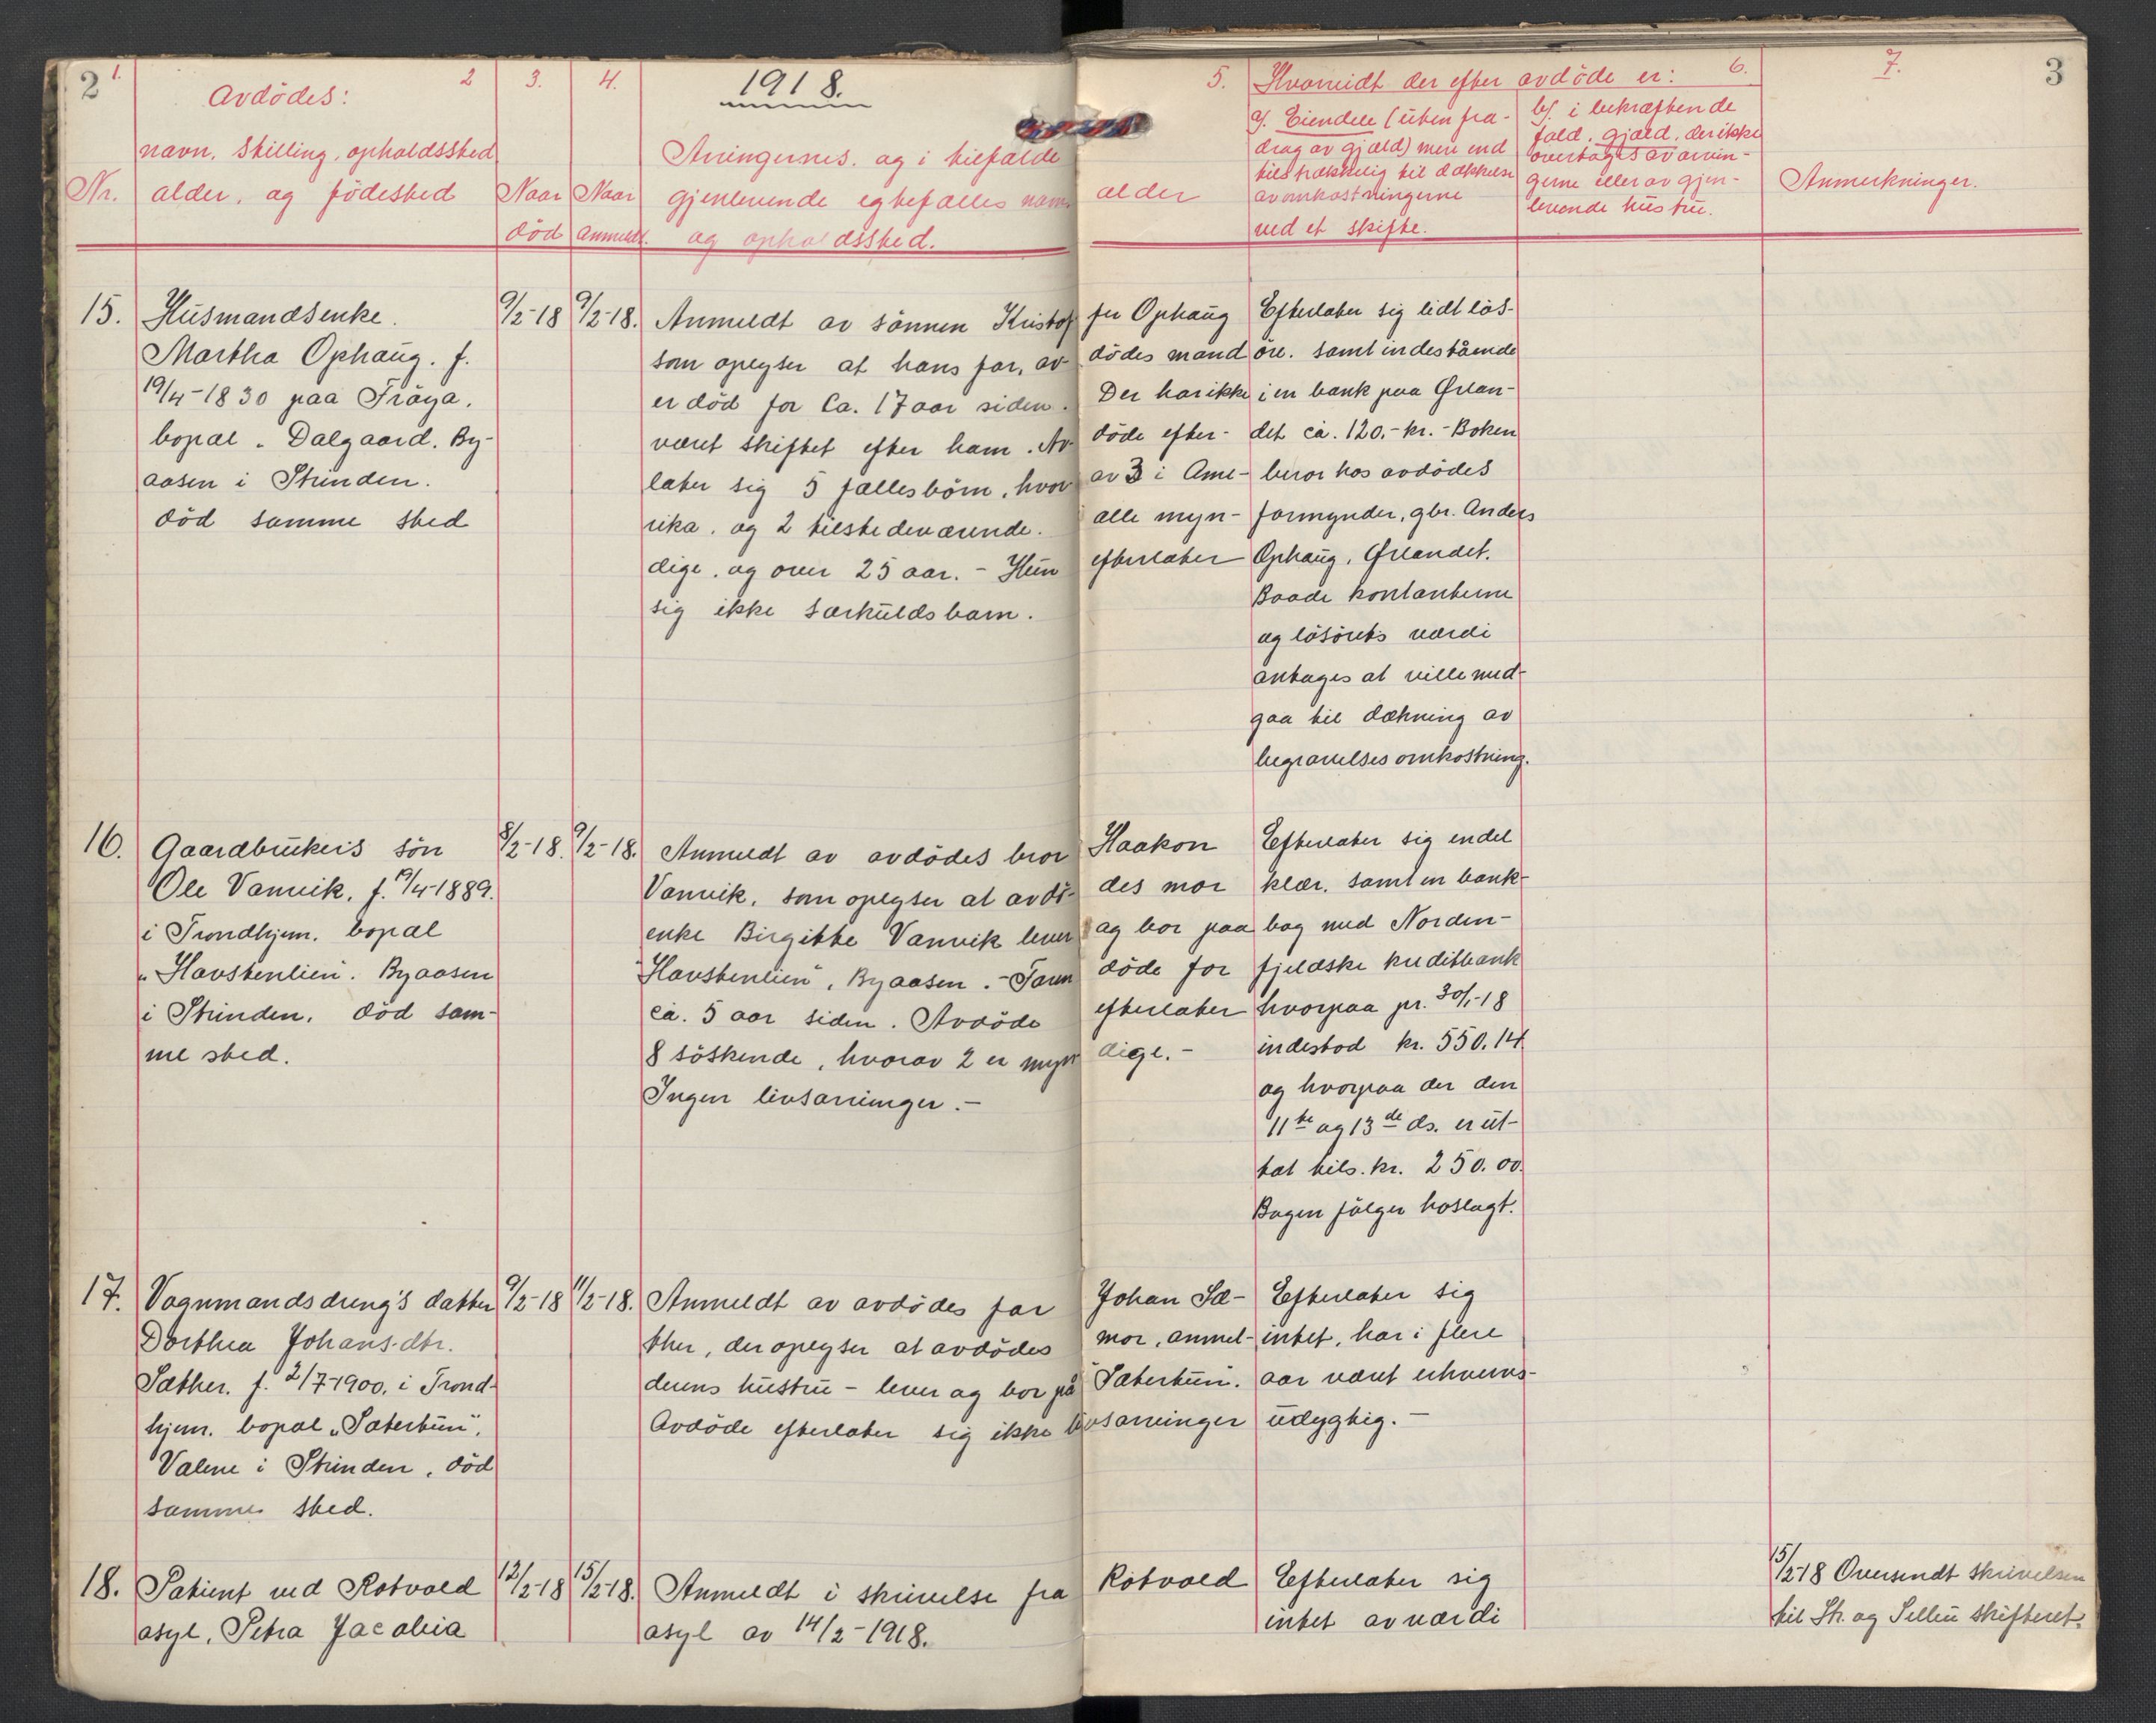 2
1918.
3
1.
2
3.
4.
5.
6.
7.
Avdödes:
navn, stilling, opholdssted
Nr. alder, og födested
Naar död
Naar anmeldt.
Arvingernes, og i tilfælde
gjenlevende egtefælles navn
og opholdssted.
alder
Hvorvidt der efter avdöde er:
a/. Eiendele (uten fra-
drag av gjæld) mere end
tilstrækkelig til dækkelse
av omkostningerne
ved et skifte.
b/. i bekræftende
fald, gjæld, der ikke
overtages av arvin-
gerne eller av gjen-
levende hustru.
Anmerkninger.
15. Husmandsenke
Martha Ophaug. f.
19/4-1830 paa Fröya.
bopæl. Dalgaard. By-
aasen i Strinden.
död samme sted
9/2-18 9/2-18.
Anmeldt av sönnen Kristof fer Ophaug
som oplyser at hans far, av dödes mand
er död for ca. 17 aar siden. Der har ikke
været skiftet efter ham. Av döde efter-
later sig 5 fællesbörn, hvor av 3 i Ame-
rika, og 2 tilstedeværende. alle myn-
dige, og over 25 aar. - Hun efterlater
sig ikke særkuldsbarn.
Efterlater sig lidt lös-
öre. samt indestående
i en bank paa Ørlan-
det ca. 120.- kr. - Boken
beror hos avdödes
formynder, gbr. Anders
Ophaug, Ørlandet.
Baade kontanterne
og lösörets værdi
antages at ville med-
gaa til dækning av
begravelsesomkostning.
16. Gaardbrukers sön
Ole Vanvik, f. 19/4-1889.
i Trondhjem. bopæl
"Havstenlien". Byaasen
i Strinden. död sam-
me sted.
8/2-18. 9/2-18.
Anmeldt av avdödes bror Haakon
Vanvik, som oplyser at avdö- des mor
enke Birgitte Vanvik lever og bor paa
"Havstenlien", Byaasen. - Faren döde for
ca. 5 aar siden. Avdöde efterlater
8 söskende, hvorav 2 er myn dige. -
Ingen livsarvinger. -
Efterlater sig endel
klær, samt en bank-
bog med Norden-
fjeldske kreditbank
hvorpaa pr. 30/1-18
indestod kr. 550.14
og hvorpaa der den
11te og 13de ds. er ut-
tat tils. kr. 250.00.
Bogen fölger hoslagt.
17. Vognmandsdreng's datter
Dorthea Johans-dtr.
Sæther. f. 2/7-1900, i Trond-
hjem. bopæl "Sæterbun".
Valene i Strinden, död
samme sted.
9/2-18 11/2-18.
Anmeldt av avdödes far Johan Sæ-
ther, der oplyser at avdödes mor, anmel-
derens hustru - lever og bor på Sæterbun.
Avdöde efterlater sig ikke livsarvinger
Efterlater sig
intet, har i flere
aar været erhvervs-
udygtig. -
18. Patient ved Rotvold
asyl, Petra Jacobia
12/2-18 15/2-18.
Anmeldt i skrivelse fra Rotvold
asyl av 14/2-1918.
Efterlater sig
intet av værdi
15/2-18 Oversendt skrivelsen
til Str. og Selbu skifteret.